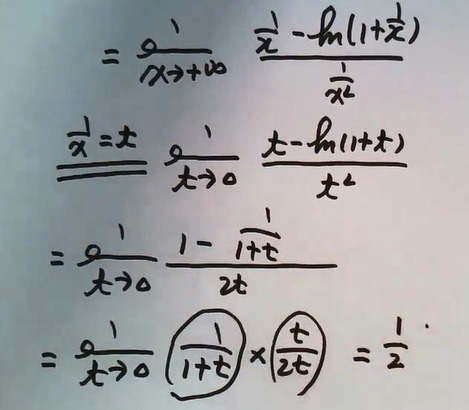 = lim x→+∞ (1/x - ln(1+1/x)) / (1/x²)
1/x=t lim t→0 (t - ln(1+t)) / t²
= lim t→0 (1 - 1/(1+t)) / 2t
= lim t→0 (1/(1+t)) × (t/2t) = 1/2